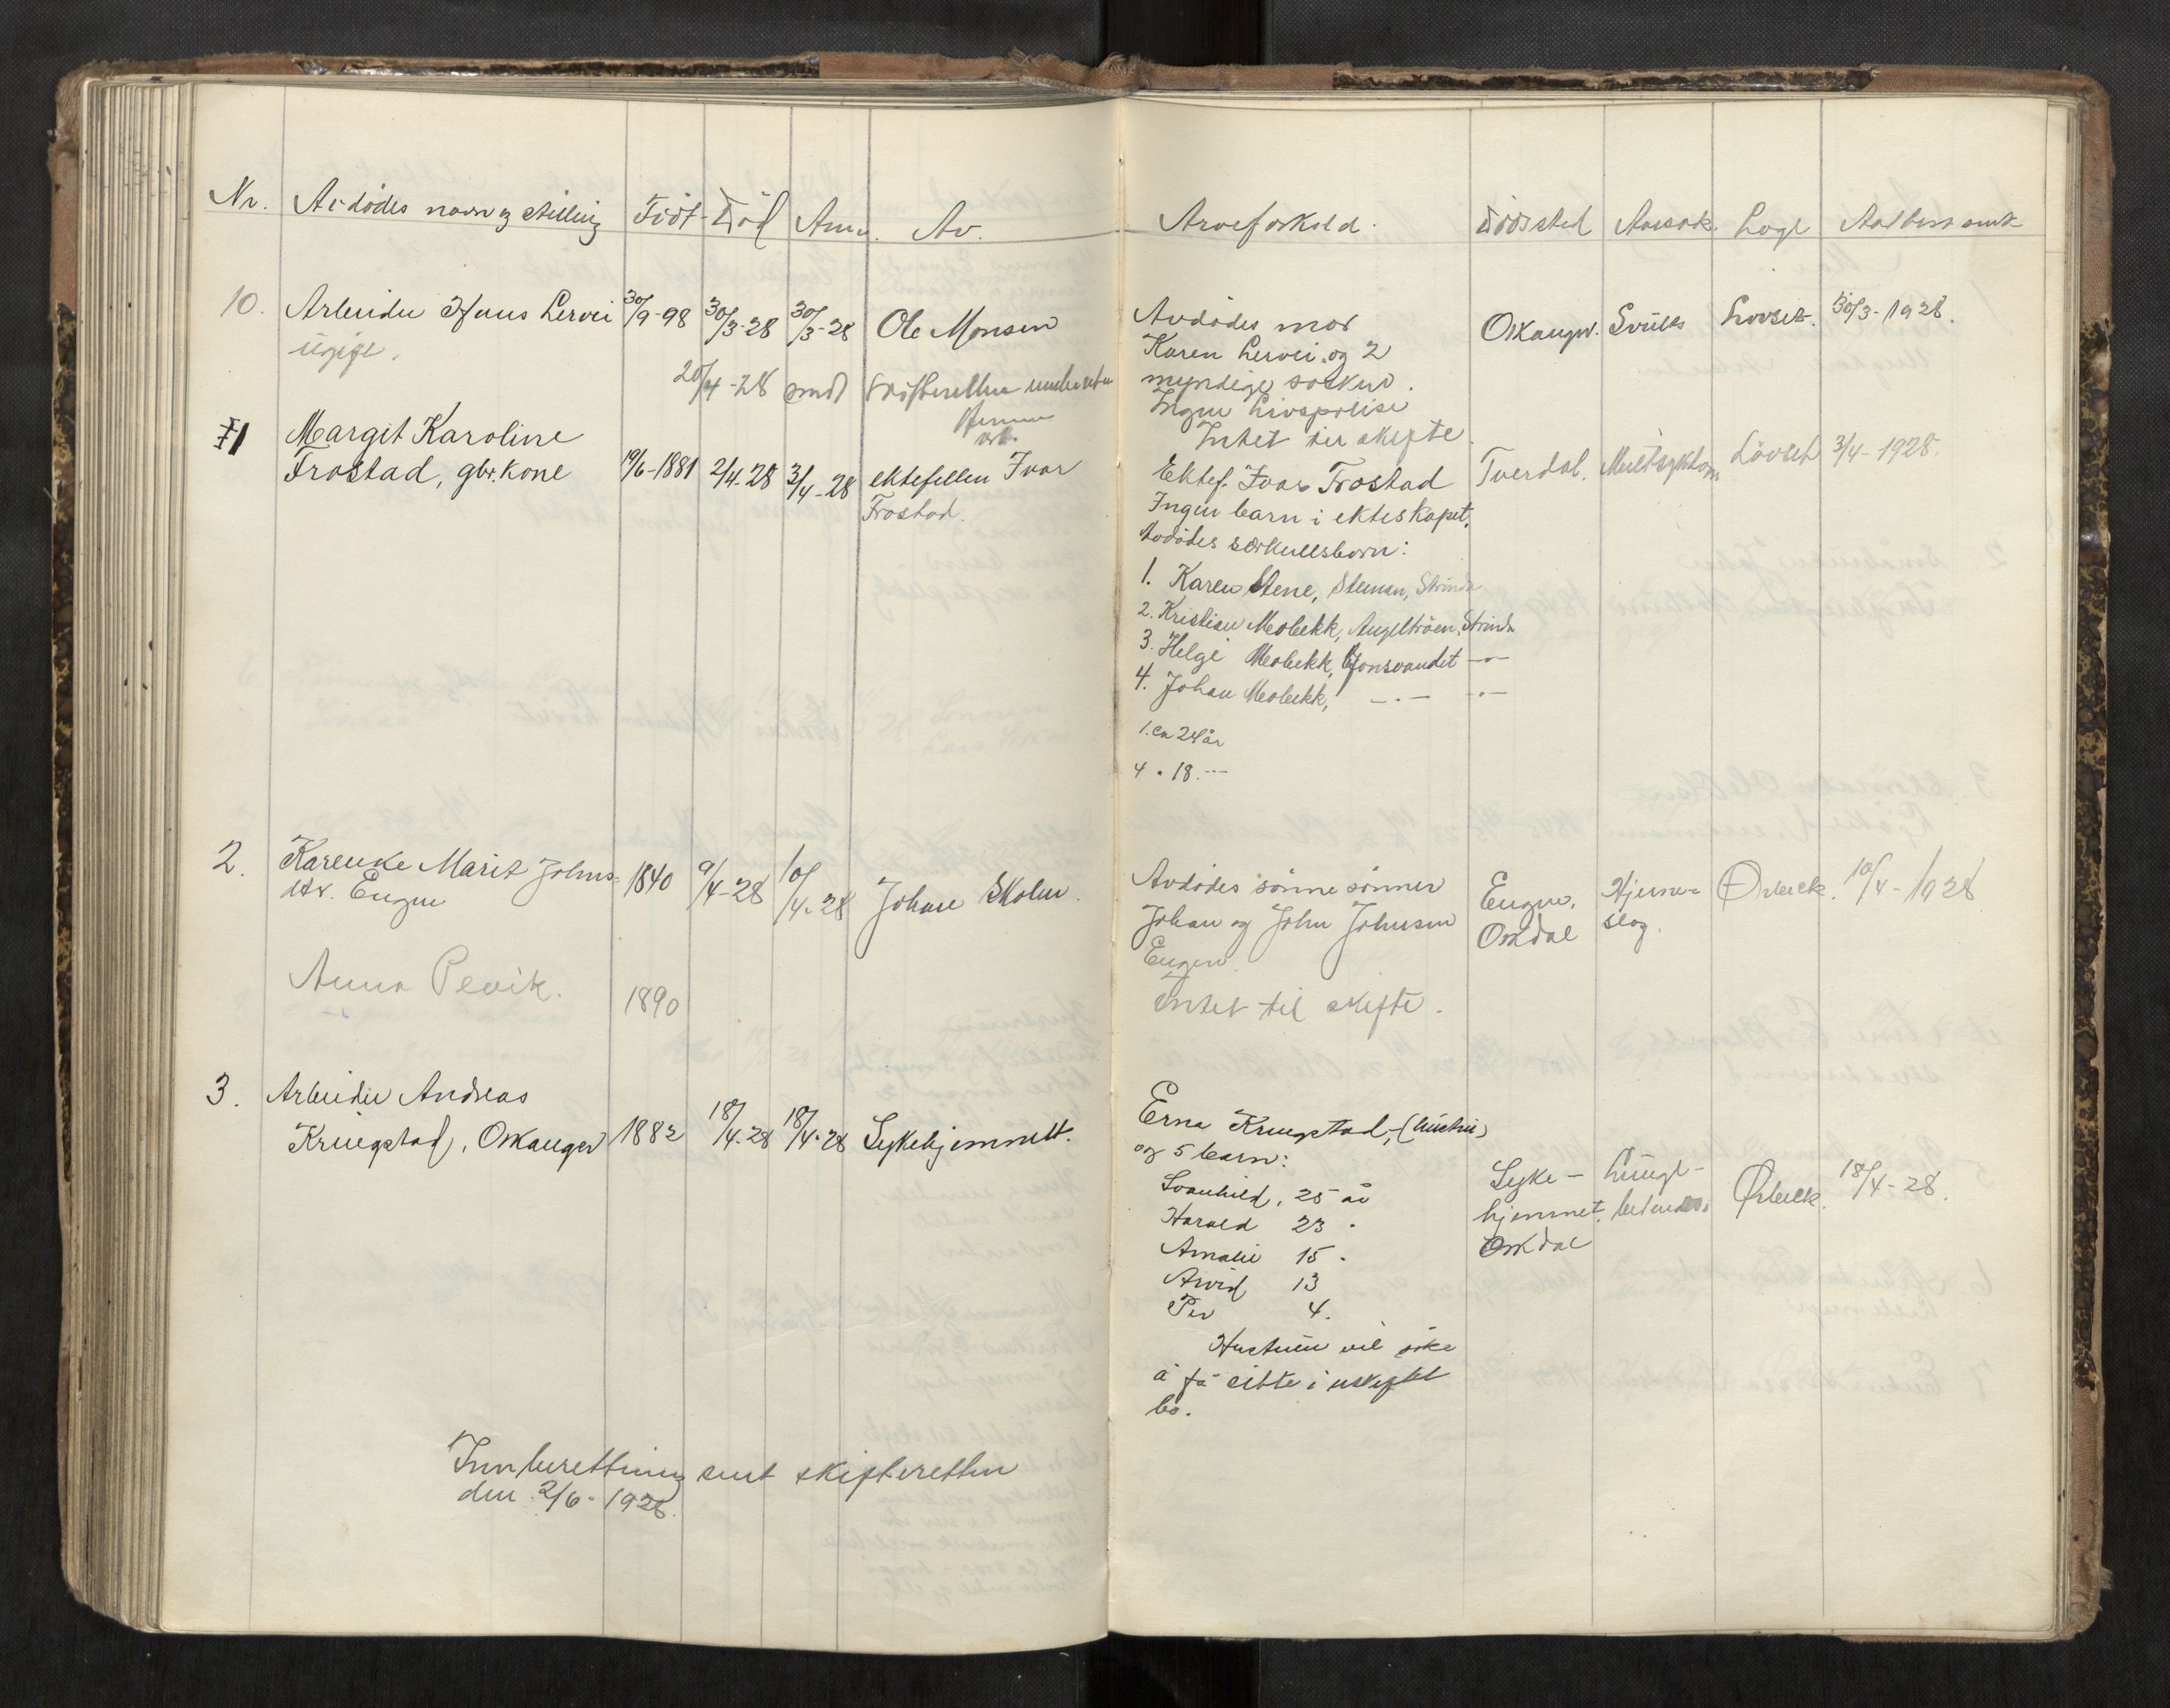 Nr. Avdödes navn og stilling Född- Död Anm. Av. Arveforhold. Dödssted Aarsak. Lege
10. Arbeider Hans Lervei 30/9-98 30/3-28 30/3-28 Ole Monsen
ugift.
20/4-28 sendt skifteretten
Avdödes mor
Karen Lervei og 2
myndige søsken.
Ingen livspolise
Intet til skifte.
Orkanger. Lövset. 30/3-1928.
1 Margit Karoline
Frostad, gbr.kone 19/6-1881 2/4-28 3/4-28 ektefellen Ivar
Frostad.
Ektef. Ivar Frostad
Ingen barn i ekteskapet.
Avdödes særkullsbarn:
1. Karen Stene, Strinda
2. Kristian Mobekk, Strinda
3. Helge Mobekk, Jonsvandet -"-
4. Johan Mobekk, -"- -"-
1. ca 24 år
4 " 18 -"-
Tverdal. Lövset 3/4-1928.
2. Karenke Marit Johns-
dtr. Eugen 1840 9/4-28 10/4-28 Johan Skolen
Avdödes sönnesönner
Johan og John Johnsen
Eugen
Intet til skifte.
Eugen,
Orkdal
Hjerne-
slag.
Ørbeck. 10/4-1928
Anna Pevik. 1890
3. Arbeider Andreas
Kringstad, Orkanger 1882 18/4-28 18/4-28 Sykehjemmet.
Erna Kringstad, (hustru)
og 5 barn:
Svanhild, 25 år
Harald 23 "
Amalie 15 "
Arvid 13
Per 4.
Hustruen vil söke
å få sitte i uskiftet
bo.
Syke-
hjemmet,
Orkdal
Lunge-
betendelse
Ørbeck. 18/4-28.
Innberetning sent skifteretten
den 2/6-1928.